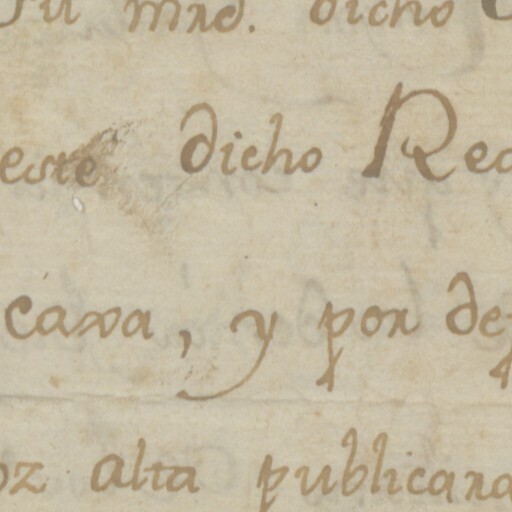 su mrd. dicho
este dicho Rea
cara, y por def
oz alta publicara